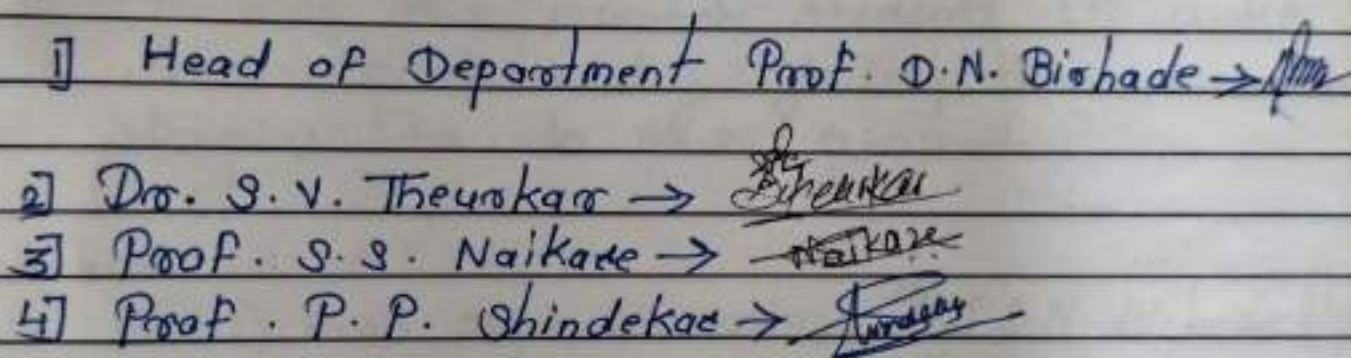 1] Head of Department Prof. D.N. Birhade →
2] Dr. S. V. Theurkar → Stheurkar
3] Prof. S. S. Naikare → Naikare
4] Prof. P. P. Shindekar →